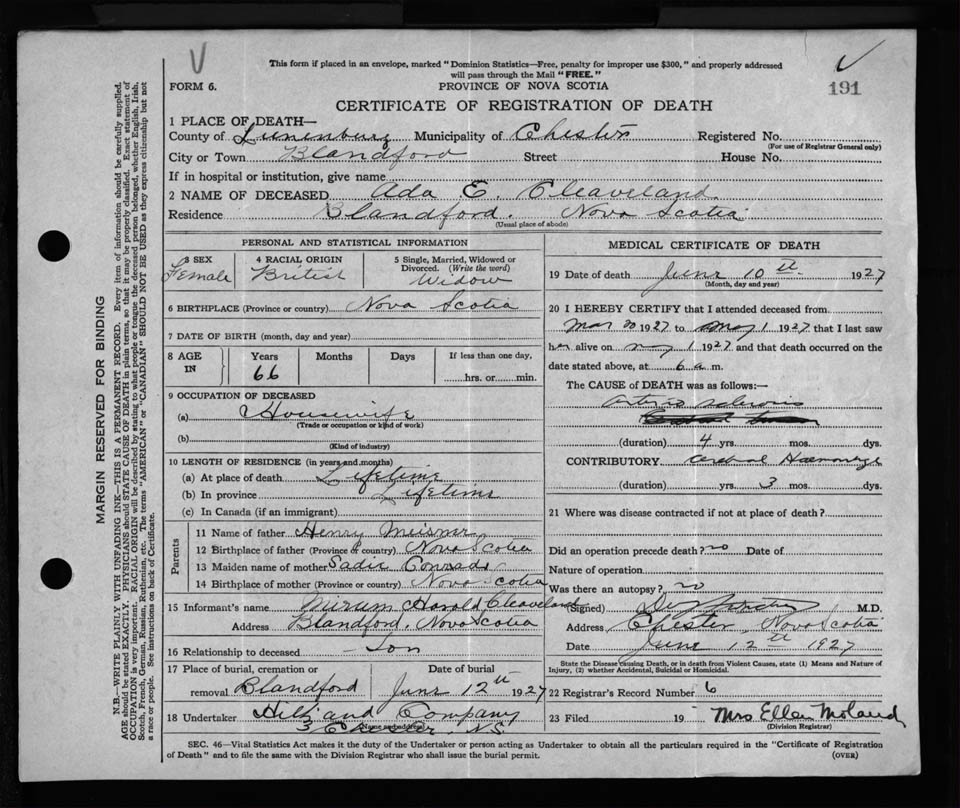 This form if placed in an envelope, marked "Dominion Statistics—Free, penalty for improper use $300," and properly addressed
will pass through the Mail "FREE."
FORM 6.
PROVINCE OF NOVA SCOTIA
191
CERTIFICATE OF REGISTRATION OF DEATH
1 PLACE OF DEATH—
County of Lunenburg Municipality of Chester Registered No.
(For use of Registrar General only)
City or Town Blandford Street House No.
If in hospital or institution, give name
2 NAME OF DECEASED Ada E. Cleaveland
Residence Blandford. Nova Scotia
(Usual place of abode)
PERSONAL AND STATISTICAL INFORMATION
3 SEX 4 RACIAL ORIGIN 5 Single, Married, Widowed or
Divorced. (Write the word)
Female British Widow
6 BIRTHPLACE (Province or country) Nova Scotia
7 DATE OF BIRTH (month, day and year)
8 AGE IN Years Months Days If less than one day,
66 hrs. or min.
9 OCCUPATION OF DECEASED
(a) Housewife
(Trade or occupation or kind of work)
(b)
(Kind of industry)
10 LENGTH OF RESIDENCE (in years and months)
(a) At place of death Lifetime
(b) In province Lifetime
(c) In Canada (if an immigrant)
Parents
11 Name of father Henry Meisner
12 Birthplace of father (Province or country) Nova Scotia
13 Maiden name of mother Sadie Conrads
14 Birthplace of mother (Province or country) Nova Scotia
15 Informant's name Mirum Harold Cleaveland
Address Blandford, Nova Scotia
16 Relationship to deceased Son
17 Place of burial, cremation or Date of burial
removal Blandford June 12th 1927
18 Undertaker Hilt and Company
3 Chester, N.S.
MEDICAL CERTIFICATE OF DEATH
19 Date of death June 10th 1927
(Month, day and year)
20 I HEREBY CERTIFY that I attended deceased from
Mar 20 1927 to May 1 1927 that I last saw
her alive on May 1 1927 and that death occurred on the
date stated above, at 6 a m.
The CAUSE of DEATH was as follows:—
Arterio sclerosis
(duration) 4 yrs. mos. dys.
CONTRIBUTORY Cerebral Haemorrage
(duration) yrs. 3 mos. dys.
21 Where was disease contracted if not at place of death?
Did an operation precede death? no Date of
Nature of operation
Was there an autopsy? no
(Signed) M.D.
Address Chester, Nova Scotia
Date June 12th 1927
State the Disease causing Death, or in death from Violent Causes, state (1) Means and Nature of
Injury, (2) whether Accidental, Suicidal or Homicidal.
22 Registrar's Record Number 6
23 Filed 19 Mrs Ella Moland
(Division Registrar)
SEC. 46—Vital Statistics Act makes it the duty of the Undertaker or person acting as Undertaker to obtain all the particulars required in the "Certificate of Registration
of Death" and to file the same with the Division Registrar who shall issue the burial permit.
(OVER)
MARGIN RESERVED FOR BINDING
N.B.—WRITE PLAINLY WITH UNFADING INK—THIS IS A PERMANENT RECORD. Every item of information should be carefully supplied.
AGE should be stated EXACTLY. PHYSICIANS should STATE CAUSE OF DEATH in plain terms, so that it may be properly classified. Exact statement of
OCCUPATION is very important. RACIAL ORIGIN will be described by stating to what people or tongue the deceased person belonged, whether English, Irish,
Scotch, French, German, Russian, Ruthenian, etc. The terms "AMERICAN" or "CANADIAN" SHOULD NOT BE USED as they express citizenship but not
a race or people. See instructions on back of Certificate.